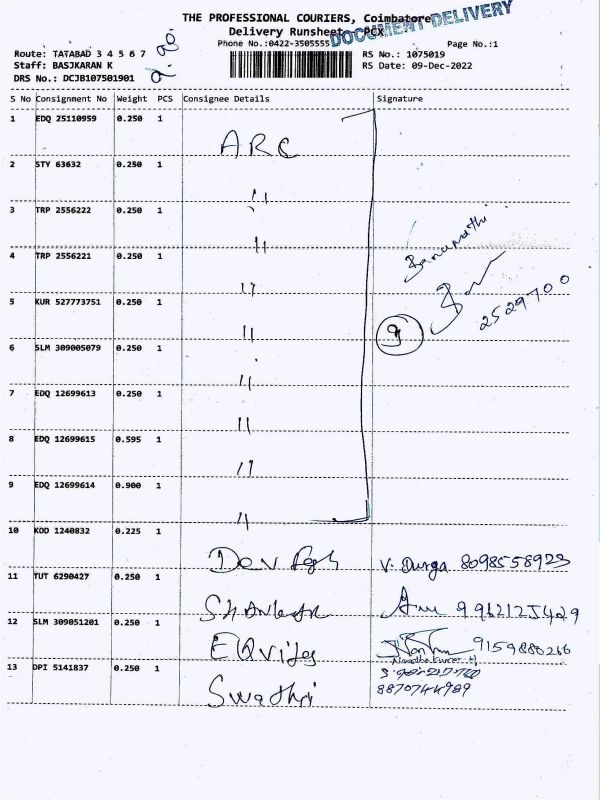 THE PROFESSIONAL COURIERS, Coimbatore
Delivery Runsheet PCX
DOCUMENT DELIVERY
Phone No.:0422-3505555
Page No.:1
Route: TATABAD 3 4 5 6 7
RS No.: 1075019
Staff: BASJKARAN K
RS Date: 09-Dec-2022
DRS No.: DCJB107501901
S No Consignment No Weight PCS Consignee Details Signature
1 EDQ 25110959 0.250 1
ARC
2 STY 63632 0.250 1
"
3 TRP 2556222 0.250 1
"
4 TRP 2556221 0.250 1
"
Banumathi
5 KUR 527773751 0.250 1
"
2529700
9
6 SLM 309005079 0.250 1
"
7 EDQ 12699613 0.250 1
"
8 EDQ 12699615 0.595 1
"
9 EDQ 12699614 0.900 1
"
10 KOD 1240832 0.225 1
V. Durga 8098558923
11 TUT 6290427 0.250 1
12 SLM 309051201 0.250 1
9159880266
13 DPI 5141837 0.250 1
Swathi
8870744989